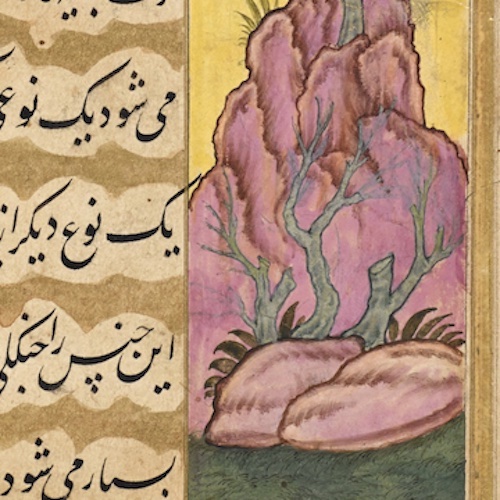 می شود یک نوعی
یک نوع دیگر از
این جنس را جنگلی
بسیار می شود